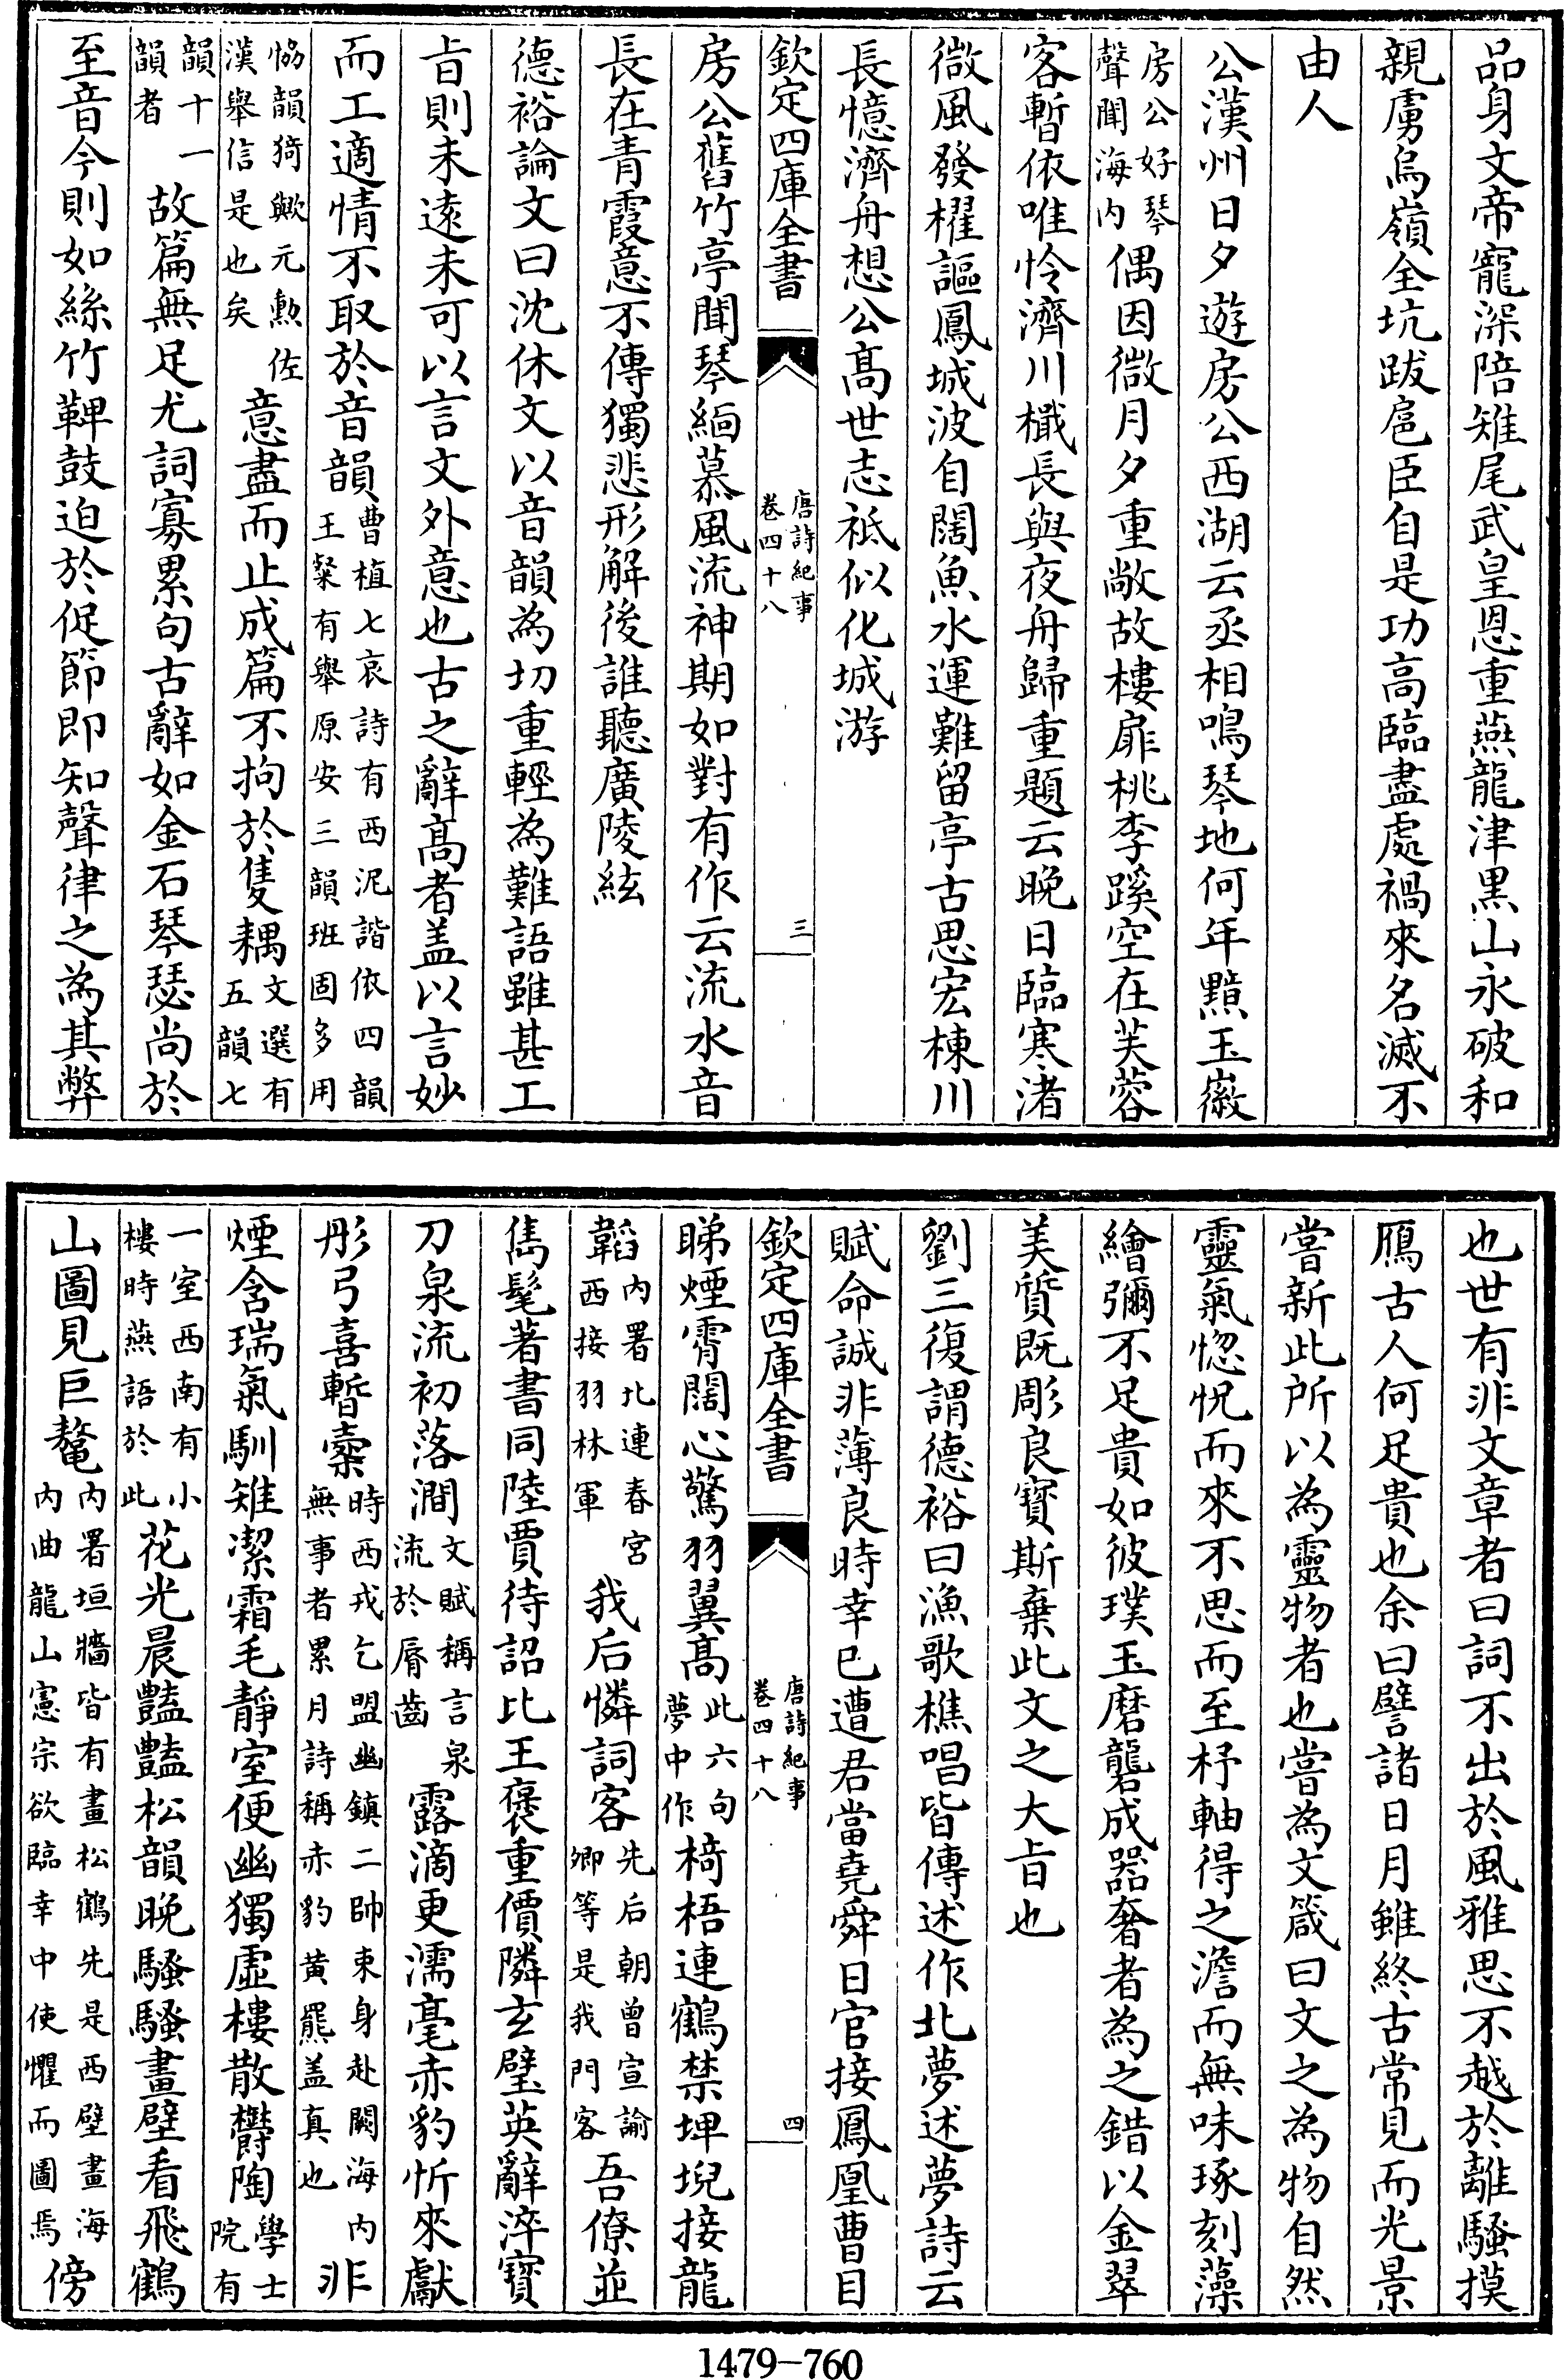 品身文帝寵深陪雉尾武皇恩重燕龍津黒山永破和
親虜烏嶺全坑跋扈臣自是功高臨盡處禍來名滅不
由人
公漢州日夕遊房公西湖云丞相鳴琴地何年黯玉徽
房公好琴
聲聞海内
偶因微月夕重敞故樓扉桃李蹊空在芙蓉
客暫依唯怜濟川檝長與夜舟歸重題云晩日臨寒渚
微風發櫂謳鳳城波自闊魚水運難留亭古思宏棟川
長憶濟舟想公髙世志祗似化城游
欽定四庫全書
唐詩紀事
卷四十八
三
房公舊竹亭聞琴緬慕風流神期如對有作云流水音
長在青霞意不傳獨悲形解後誰聽廣陵絃
德裕論文曰沈休文以音韻為切重輕為難語雖甚工
㫖則未遠未可以言文外意也古之辭髙者盖以言妙
而工適情不取於音韻
曹植七哀詩有西泥諧依四韻
王粲有舉原安三韻班固多用
恊韻猗歟元勲佐
漢舉信是也矣
意盡而止成篇不拘於隻耦
文選有
五韻七
韻十一
韻者
故篇無足尤詞寡累句古辭如金石琴瑟尚於
至音今則如絲竹鞞鼓迫於促節即知聲律之為其弊
也世有非文章者曰詞不出於風雅思不越於離騷摸
鴈古人何足貴也余曰譬諸日月雖終古常見而光景
嘗新此所以為靈物者也嘗為文箴曰文之為物自然
靈氣惚怳而來不思而至杼軸得之澹而無味琢刻藻
繪彌不足貴如彼璞玉磨礱成器奢者為之錯以金翠
美質既彫良寳斯棄此文之大㫖也
劉三復謂德裕曰漁歌樵唱皆傳述作北夢述夢詩云
賦命誠非薄良時幸已遭君當堯舜日官接鳳凰曹目
欽定四庫全書
唐詩紀事
卷四十八
四
睇煙霄闊心驚羽翼髙
此六句
夢中作
椅梧連鶴禁埤堄接龍
韜
内署北連春宮
西接羽林軍
我后憐詞客
先后朝曾宣諭
卿等是我門客
吾僚並
雋髦著書同陸賈待詔比王褒重價隣玄璧英辭淬寳
刀泉流初落澗
文賦稱言泉
流於脣齒
露滴更濡毫赤豹忻來獻
彤弓喜暫櫜
時西戎乞盟幽鎮二帥束身赴闕海内
無事者累月詩稱赤豹黄羆盖真也
非
煙含瑞氣馴雉潔霜毛靜室便幽獨虚樓散欎陶
學士
院有
一室西南有小
樓時燕語於此
花光晨豔豔松韻晩騷騷畫壁看飛鶴
山圖見巨鼇
内署垣牆皆有畫松鶴先是西壁畫海
内曲龍山憲宗欲臨幸中使懼而圖焉
傍
1479-760